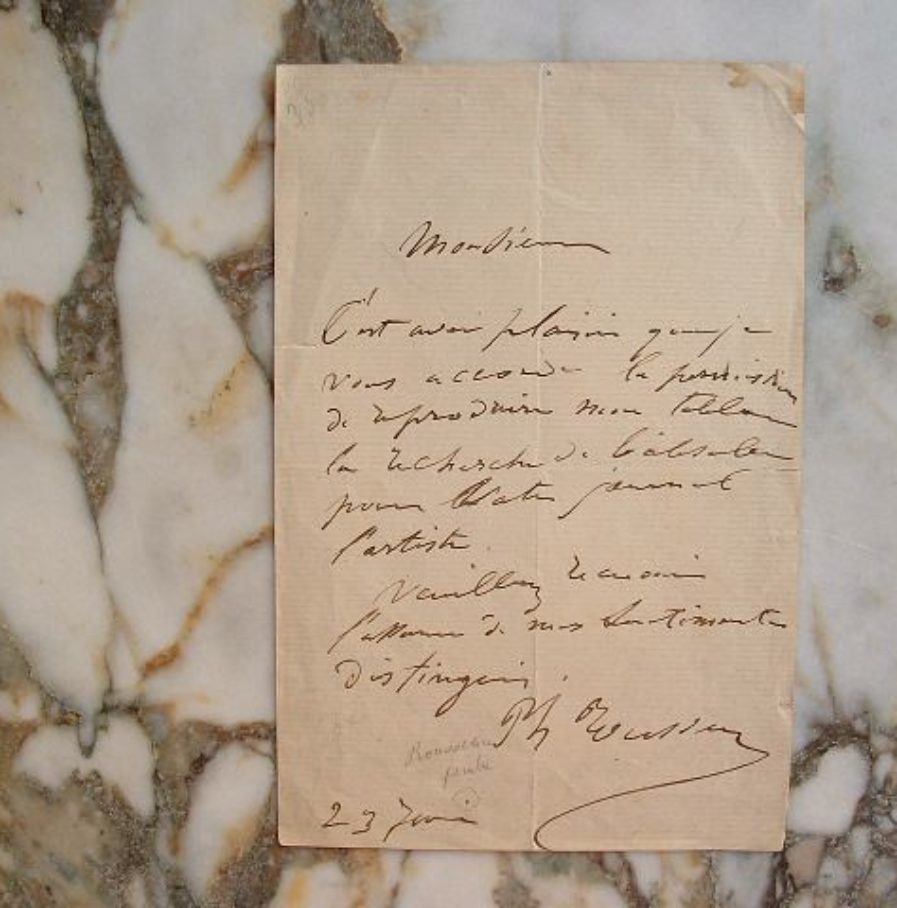 Monsieur
C'est avec plaisir que je
vous accorde la permission
de reproduire mon tableau
la recherche de l'absolu
pour votre journal
l'artiste.
Veuillez recevoir
l'assurance de mes sentiments
distingués.
Ph Rousseau
Rousseau
peintre
23 Janvier